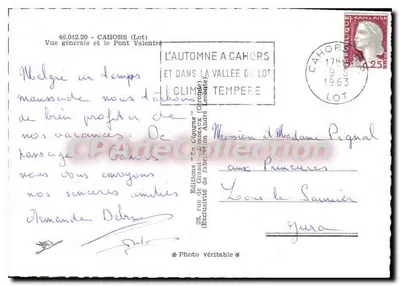 46.042.20 - CAHORS (Lot)
Vue générale et le Pont Valentré
L'AUTOMNE A CAHORS
ET DANS LA VALLEE DU LOT
CLIMAT TEMPERE
CAHORS
17H
9
1963
LOT
FRANÇAISE
0,25
Malgré un temps
maussade nous tâchons
de bien profiter de
nos vacances. De
passage à Cahors
nous vous envoyons
nos sincères amitiés
Armande
Editions "La Cigogne"
28, rue de Grassi - BORDEAUX (Gironde)
(Exclusivité de fabrication André Leconte)
Monsieur et Madame Pignal
aux
Lons le Saunier
Jura
* Photo véritable *
CPArteCollection